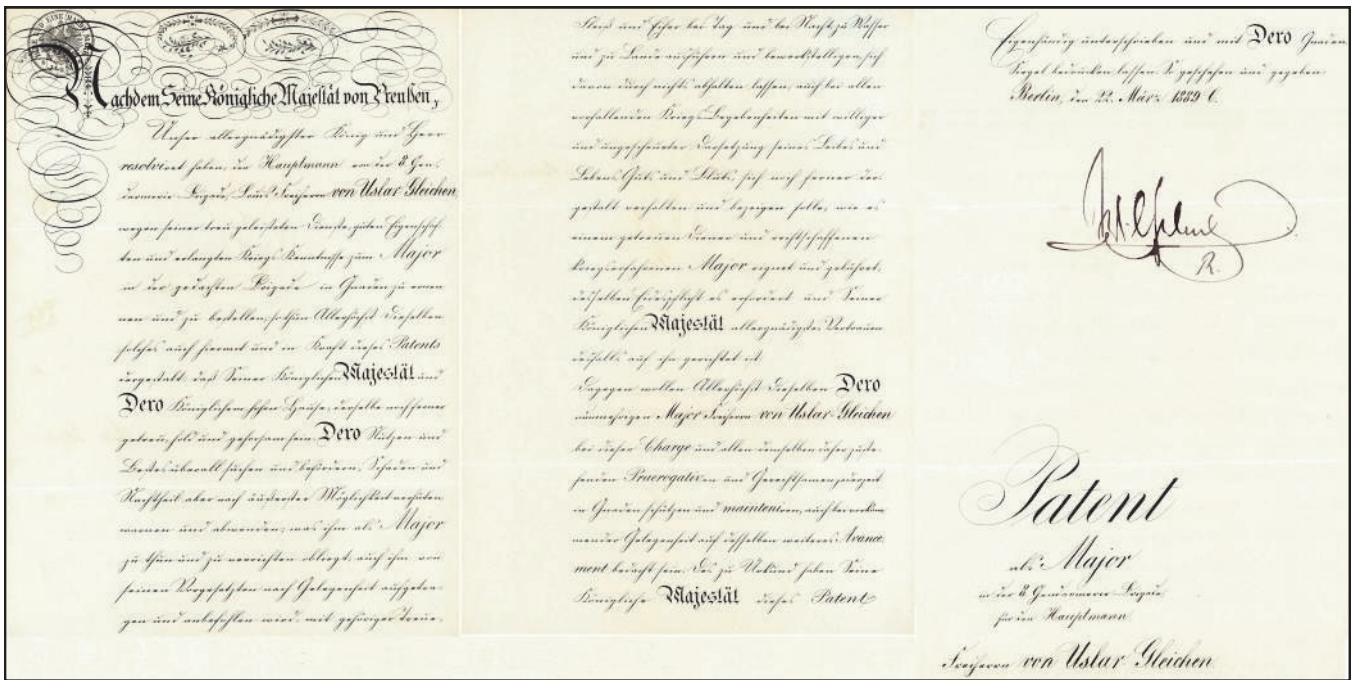 Nachdem Seine Königliche Majestät von Preußen,
Unser allergnädigster König und Herr
resolviret haben, den Hauptmann von der 8. Gen-
darmerie Brigade, Louis Freiherrn von Uslar Gleichen
wegen seiner treu geleisteten Dienste, guten Eigenschaf-
ten und erlangten Kriegs Kenntnisse zum Major
in der gedachten Brigade in Gnaden zu ernen
nen und zu bestellen; so thun Allerhöchst Dieselben
solches auch hiermit und in Kraft dieses Patents
dergestalt, daß Seiner Königlichen Majestät und
Dero Königlichem hohen Hause, derselbe noch ferner
getreu, hold und gehorsam sein, Dero Nutzen und
Bestes überall suchen und befördern, Schaden und
Nachtheil aber nach äußerster Möglichkeit verhüten
warnen und abwenden; was ihm als Major
zu thun und zu verrichten obliegt, auch ihm von
seinen Vorgesetzten nach Gelegenheit aufgetra-
gen und anbefohlen wird, mit gehöriger Treue,
Fleiß und Eifer bei Tag und bei Nacht, zu Wasser
und zu Lande ausführen und bewerkstelligen, sich
davon durch nichts abhalten lassen, auch bei allen
vorfallenden Kriegs Begebenheiten mit williger
und ungescheuter Darsetzung seines Leibes und
Lebens, Guts und Bluts, sich noch ferner der-
gestalt verhalten und bezeigen solle, wie es
einem getreuen Diener und rechtschaffenen
kriegserfahrenen Major eignet und gebührt,
desselben Eidespflicht es erfordert und Seiner
Königlichen Majestät allergnädigstes Vertrauen
desfalls auf ihn gerichtet ist.
Dagegen wollen Allerhöchst Dieselben Dero
nunmehrigen Major Freiherrn von Uslar Gleichen
bei dieser Charge und allen demselben daher zuste-
henden Praerogativen und Gerechtsamen, jederzeit
in Gnaden schützen und mainteniren, auch bei vorkom
mender Gelegenheit auf desselben weiteres Avance
ment bedacht sein. Des zu Urkund haben Seine
Königliche Majestät dieses Patent
Eigenhändig unterschrieben und mit Dero Gnaden
Siegel bedrucken lassen. So geschehen und gegeben
Berlin, den 22. März 1889
Patent
als Major
in der 8. Gendarmerie Brigade
für den Hauptmann
Freiherrn von Uslar Gleichen